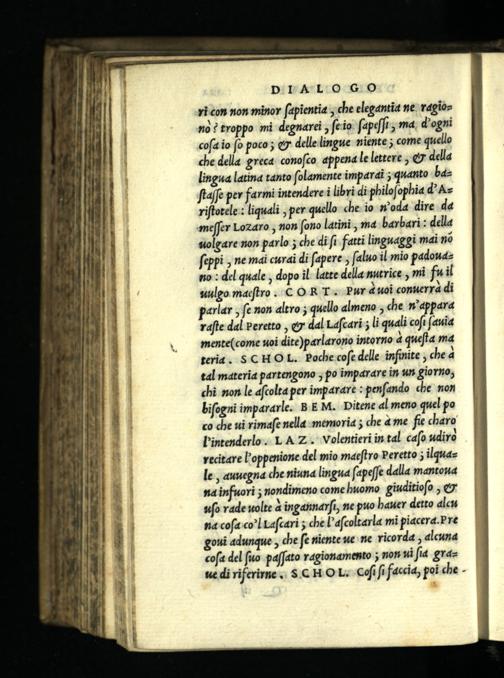 DIALOGO
ri con non minor sapientia, che elegantia ne ragio=
nò? troppo mi degnarei, se io sapessi, ma d'ogni
cosa io so poco; & delle lingue niente; come quello
che della greca conosco appena le lettere, & della
lingua latina tanto solamente imparai; quanto ba=
stasse per farmi intendere i libri di philosophia d'A=
ristotele: liquali, per quello che io n'oda dire da
messer Lozaro, non sono latini, ma barbari: della
uolgare non parlo; che di si fatti linguaggi mai nō
seppi, ne mai curai di sapere, saluo il mio padoua=
no: del quale, dopo il latte della nutrice, mi fu il
uulgo maestro. CORT. Pur à uoi conuerrà di
parlar, se non altro; quello almeno, che n'appara
raste dal Peretto, & dal Lascari; li quali cosi sauia
mente(come uoi dite)parlarono intorno à questa ma
teria. SCHOL. Poche cose delle infinite, che à
tal materia partengono, po imparare in un giorno,
chi non le ascolta per imparare: pensando che non
bisogni impararle. BEM. Ditene al meno quel po
co che ui rimase nella memoria; che à me fie charo
l'intenderlo. LAZ. Volentieri in tal caso udirò
recitare l'oppenione del mio maestro Peretto; ilqua=
le, auuegna che niuna lingua sapesse dalla mantoua
na infuori; nondimeno come huomo giuditioso, &
uso rade uolte à ingannarsi, ne puo hauer detto alcu
na cosa co'l Lascari; che l'ascoltarla mi piacera.Pre
goui adunque, che se niente ue ne ricorda, alcuna
cosa del suo passato ragionamento; non ui sia gra=
ue di riferirne. SCHOL. Cosi si faccia, poi che